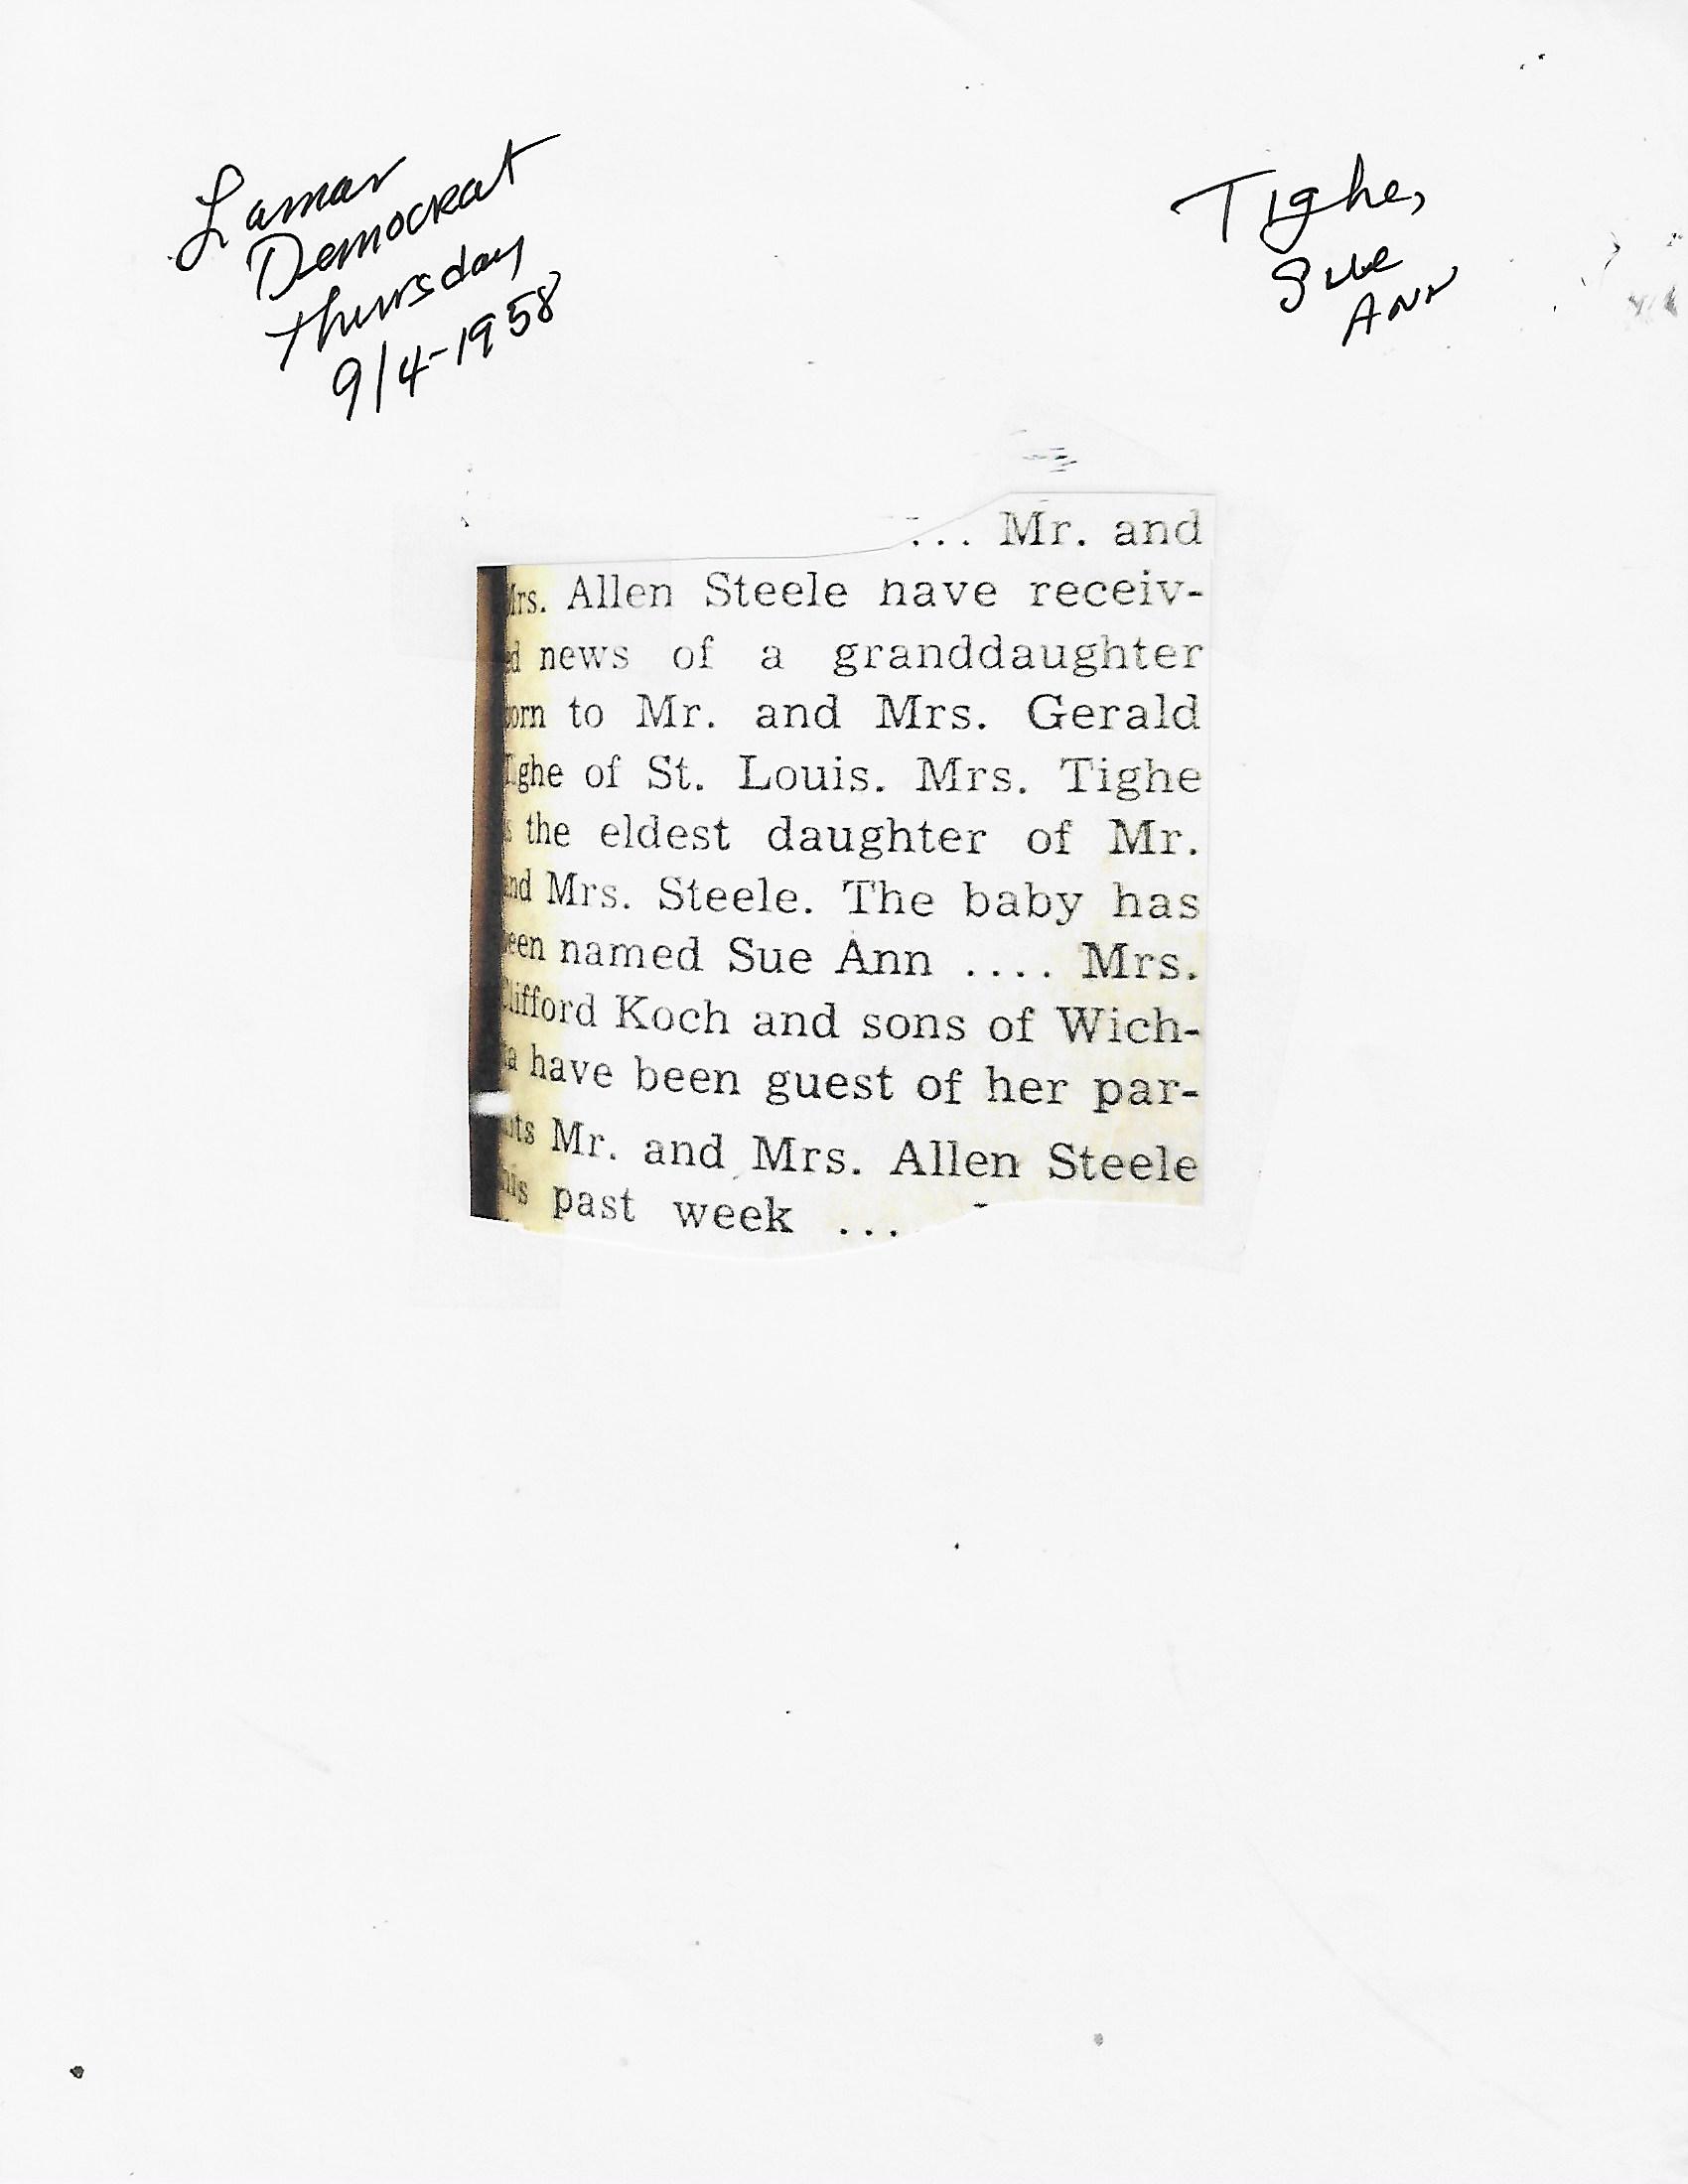 Lamar
Democrat
Thursday
9/4-1958
Tighe,
Sue
Ann
... Mr. and
Mrs. Allen Steele have receiv-
ed news of a granddaughter
born to Mr. and Mrs. Gerald
Tighe of St. Louis. Mrs. Tighe
is the eldest daughter of Mr.
and Mrs. Steele. The baby has
been named Sue Ann .... Mrs.
Clifford Koch and sons of Wich-
ita have been guest of her par-
ents Mr. and Mrs. Allen Steele
this past week ...